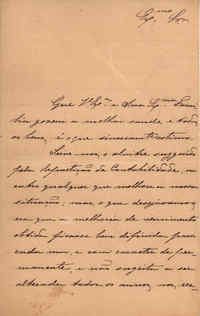 Exmo Snr.
Que V. Exa e Sua Exma Fami-
lia gozem a melhor saude e todos
os bens, é o que sinceramente estimo.
Serve-nos o alvitre suggerido
pela Repartição de Contabilidade, ou
outro qualquer que melhore a nossa
situação; mas, o que desejavamos
era que a melhoria de vencimento
obtida ficasse bem definida para
cada um, e com caracter de per-
manente, e não sugeita a ser
alterada todos os annos, nos,